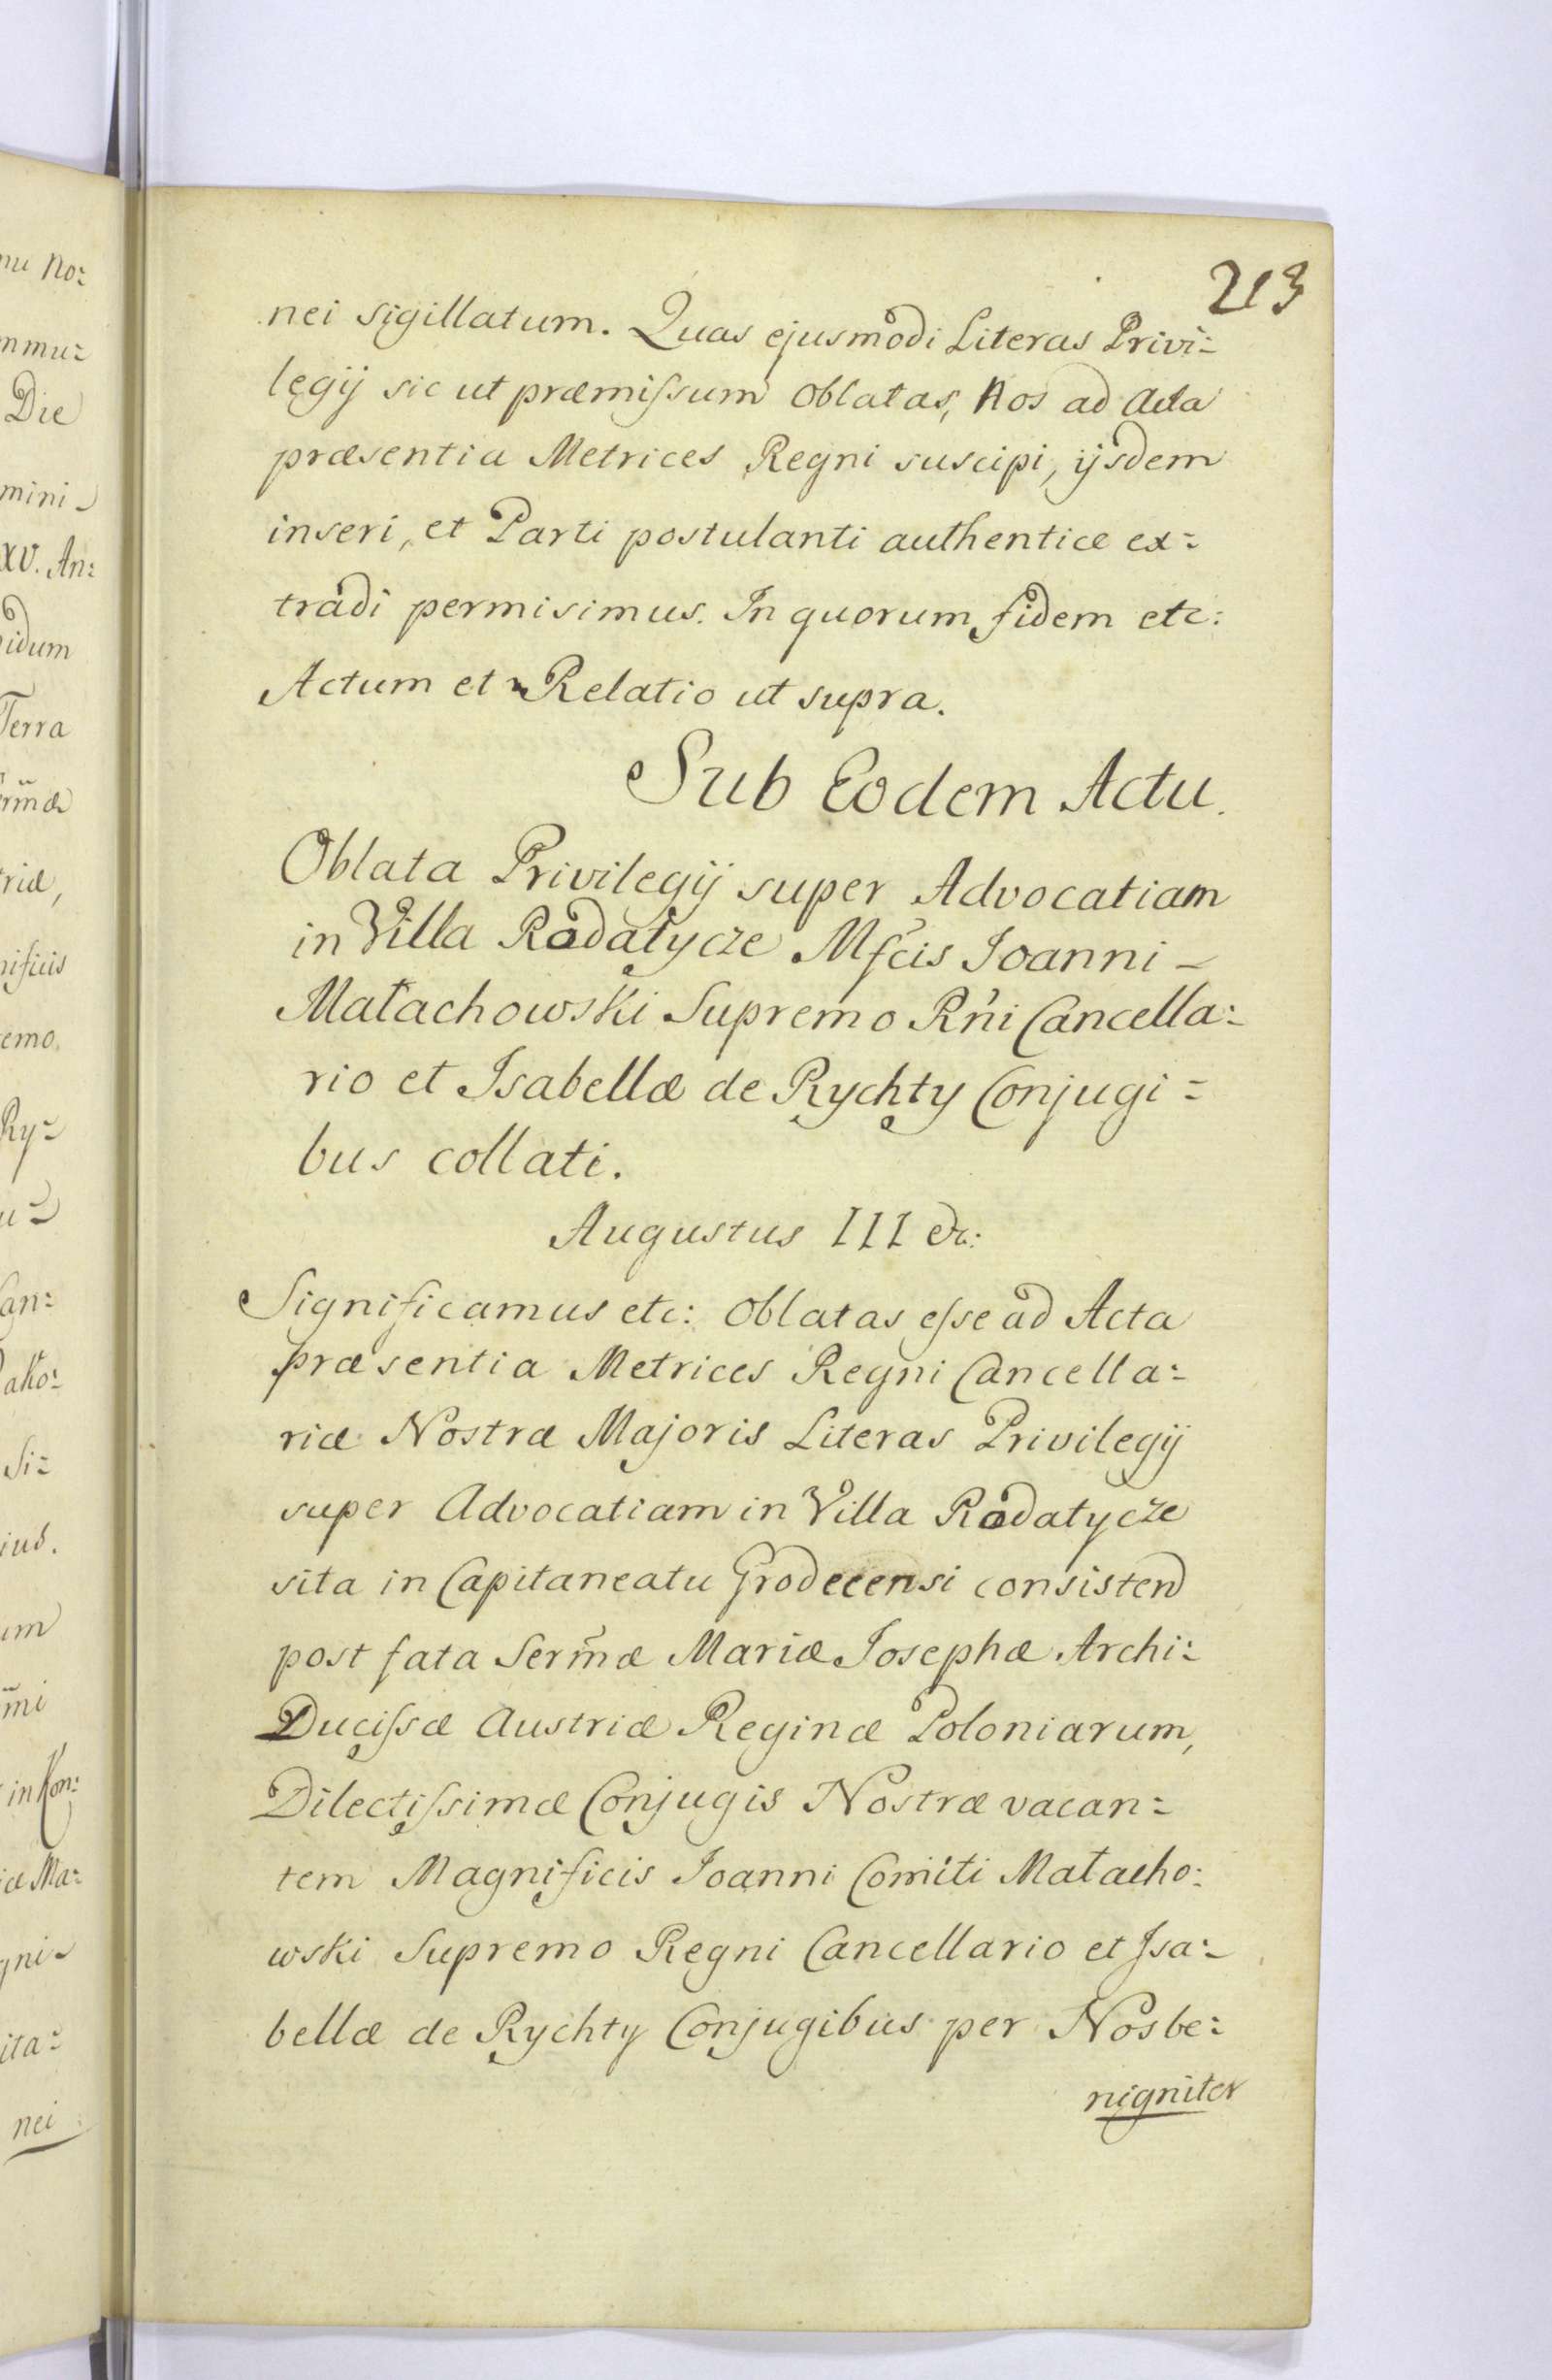 213
nei sigillatum. Quas ejusmodi Literas Privi=
legij sic ut præmissum oblatas, Nos ad Acta
præsentia Metrices Regni suscipi, ijsdem
inseri, et Parti postulanti authentice ex=
tradi permisimus. In quorum fidem etc:
Actum et Relatio ut supra.
Sub Eodem Actu.
Oblata Privilegij super Advocatiam
in Villa Rodatycze Mfcis Joanni -
Małachowski Supremo Rńi Cancella=
rio et Isabellæ de Rychty Conjugi=
bus collati.
Augustus III &c:
Significamus etc: Oblatas esse ad Acta
præsentia Metrices Regni Cancella=
riæ Nostræ Majoris Literas Privilegij
super Advocatiam in Villa Rodatycze
sita in Capitaneatu Grodecensi consisten
post fata Serm̃æ Mariæ Josephæ Archi=
Ducissæ Austriæ Reginæ Poloniarum,
Dilectissimæ Conjugis Nostræ vacan=
tem Magnificis Joanni Comiti Małacho=
wski Supremo Regni Cancellario et Isa=
bellæ de Rychty Conjugibus per Nos be=
nigniter
nu No=
mmu=
Die
mini
XV. An=
idum
Terra
erm̃æ
riæ,
nificis
emo
Ry=
u=
Can=
ako=
Si=
ius.
um
m̃i
in Kon=
iæ Ma=
gni
ita=
nei